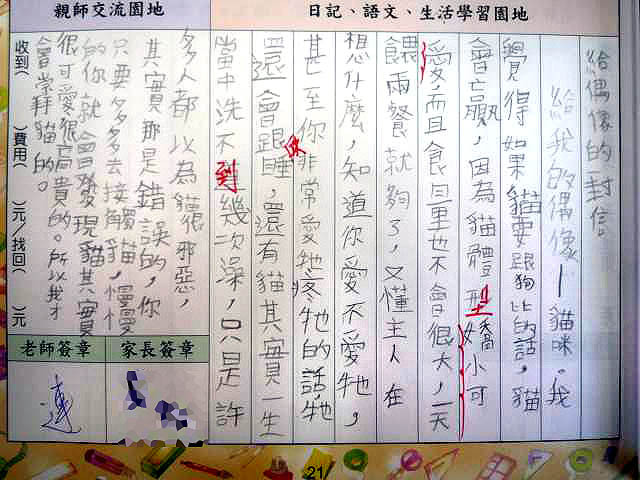 日記、語文、生活學習園地
給偶像的封信。
給我的偶像—貓咪。我
覺得如果貓要跟狗比的話，貓
會贏，因為貓體型嬌小可
愛，而且食量也不會很大，一天
餵兩餐就夠了，又懂主人在
想什麼，知道你愛不愛牠，
甚至你非常愛牠疼牠的話，牠
還會跟睡，還有貓其實一生
當中洗不到幾次澡，只是許
親師交流園地
多人都以為貓很邪惡，
其實那是錯誤的，你
只要多多去接觸貓，慢慢
的你就會發現貓其實
很可愛很高貴的。所以我才
會崇拜貓的。
收到( )費用( )元/找回( )元
家長簽章
老師簽章
連
21